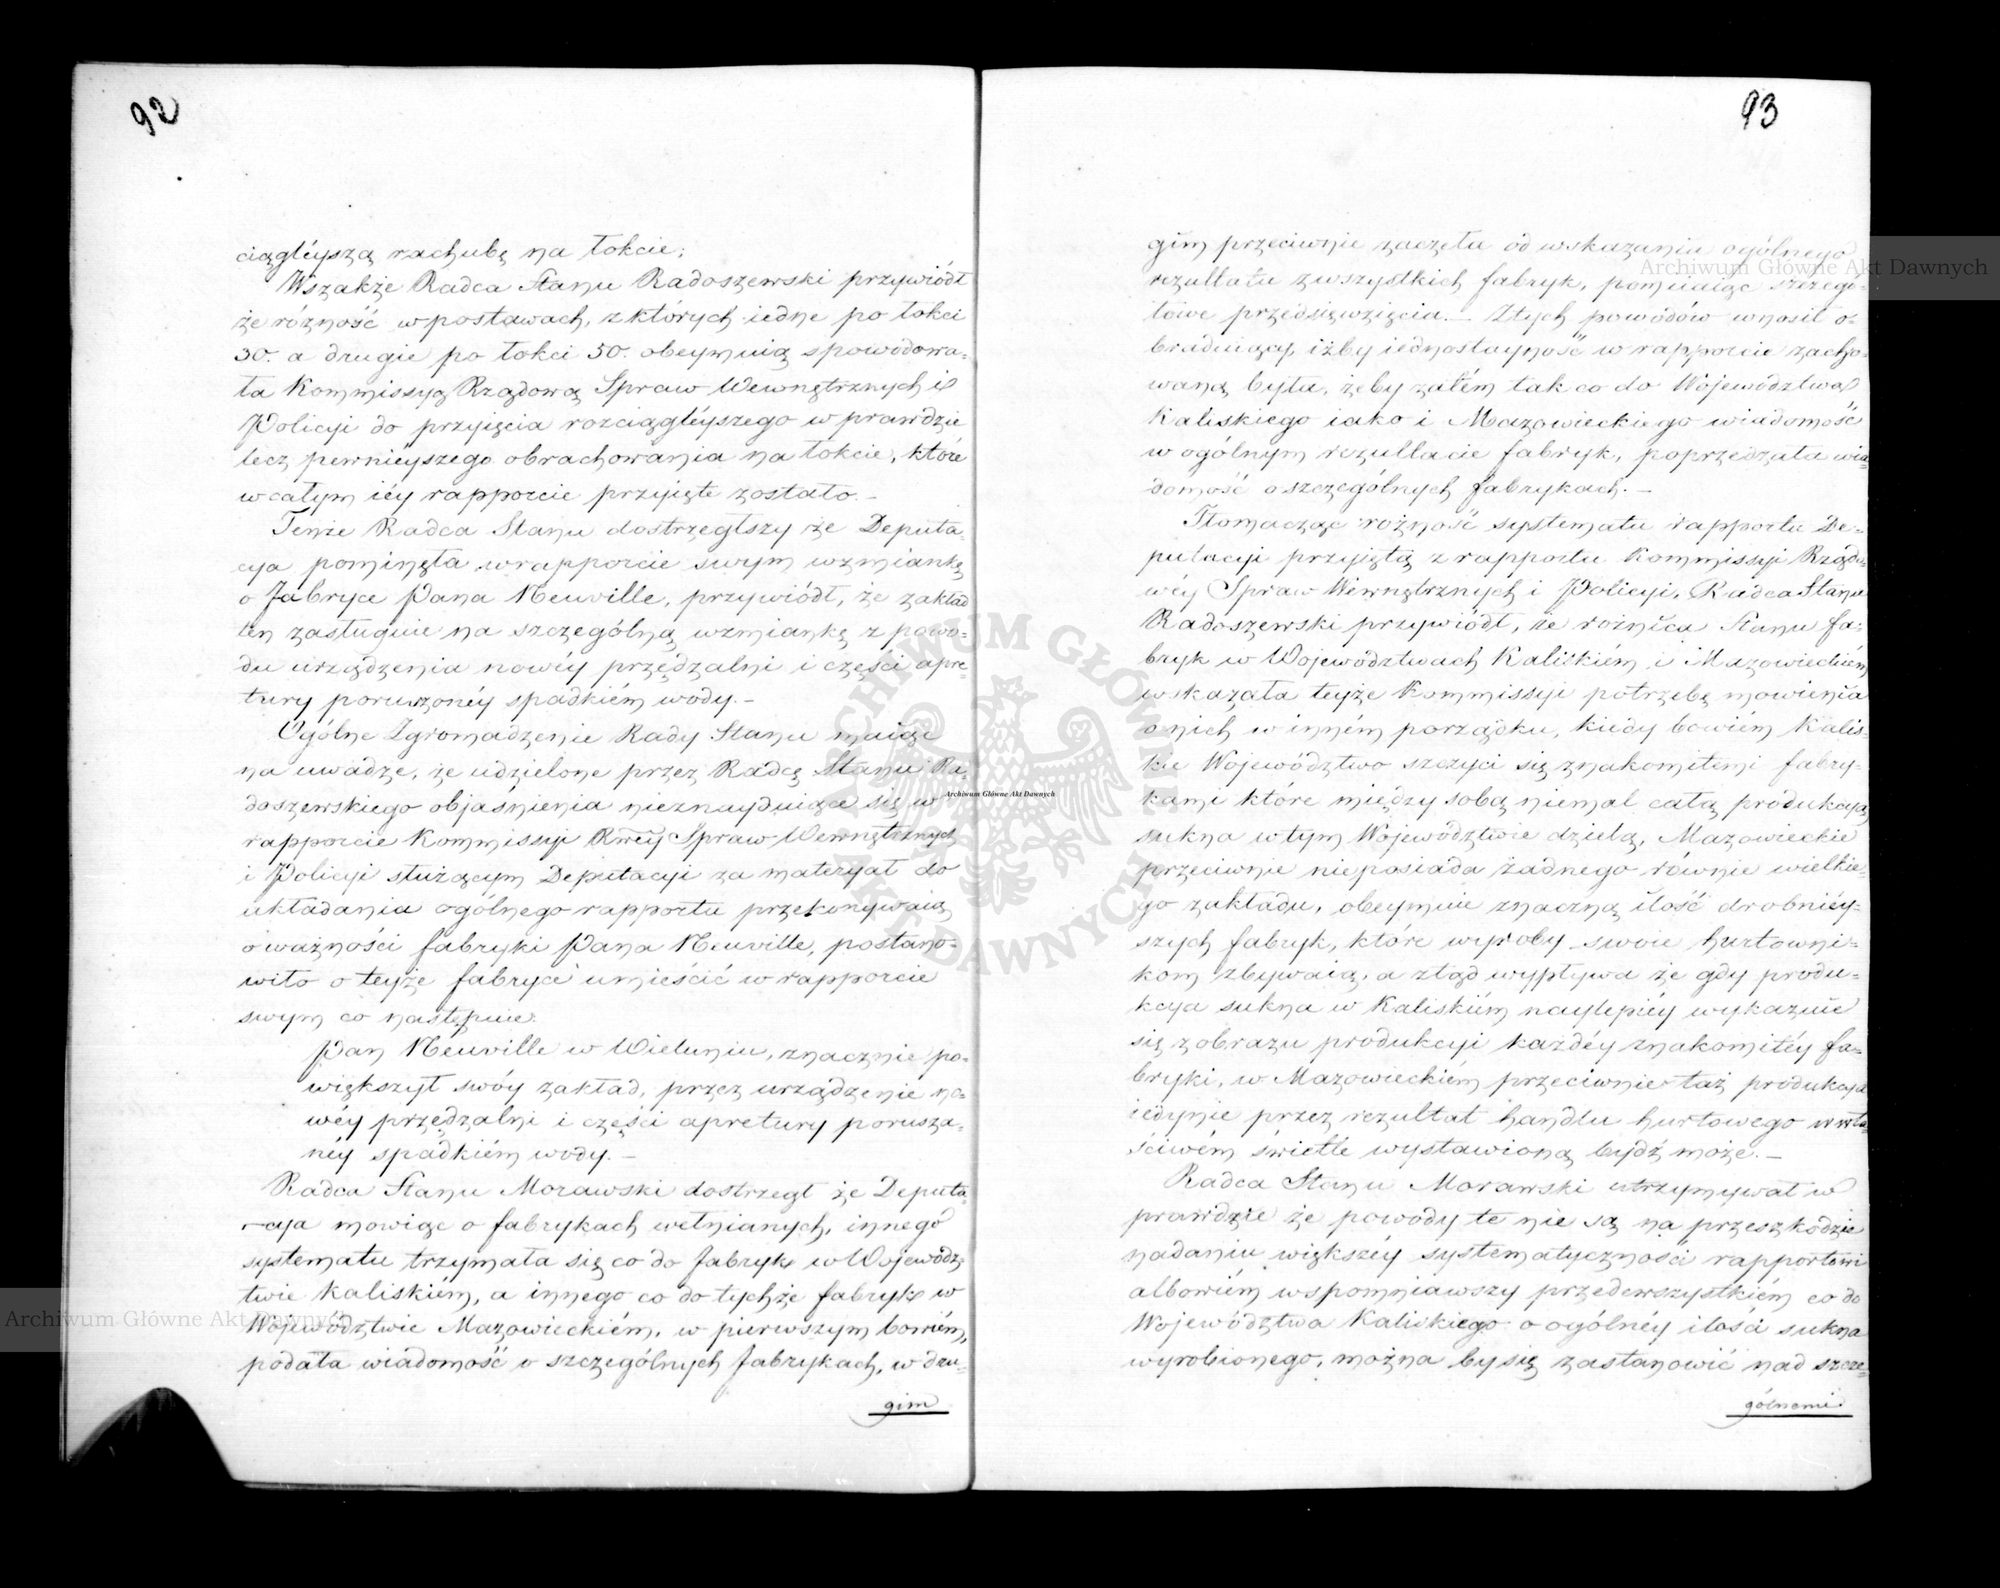 92
ciągléyszą rachubę na łokcie;
Wszakże Radca Stanu Radoszewski przywiódł
że różność w postawach, z których iedne po łokci
30. a drugie po łokci 50. obeymuią spowodowa-
ła Kommissyą Rządową Spraw Wewnętrznych i
Policyi do przyięcia rozciągléyszego w prawdzie
lecz pewnieyszego obrachowania na łokcie, które
w całym iéy rapporcie przyięte zostało. –
Tenże Radca Stanu dostrzegłszy że Deputa-
cya pominęła w rapporcie swym wzmiankę
o Fabryce Pana Neuville, przywiódł, że zakład
ten zasługuie na szczególną wzmiankę z powo-
du urządzenia nowéy przędzalni i części apre
tury poruszonéy spadkiém wody. –
Ogólne Zgromadzenie Rady Stanu maiąc
na uwadze, że udzielone przez Radcę Stanu Ra-
doszewskiego objaśnienia nieznayduiące się w
rapporcie Kommissyi Rwéy Spraw Wewnętrznych
i Policyi służącym Deputacyi za materyał do
układania ogólnego rapportu przekonywaią
o ważności fabryki Pana Neuville, postano-
wiło o teyże fabryce umieścić w rapporcie
swym co następuie:
Pan Neuville w Wieluniu, znacznie po-
większył swóy zakład, przez urządzenie no-
wéy przędzalni i części apretury porusza-
néy spadkiém wody. –
Radca Stanu Morawski dostrzegł że Deputa-
cya mowiąc o fabrykach wełnianych, innego
systematu trzymała się co do fabryk w Wojewódz
twie Kaliskiém, a innego co do tychże fabryk w
Województwie Mazowieckiém, w pierwszym bowiém,
podała wiadomość o szczególnych fabrykach, w dru-
gim
93
gim przeciwnie zaczęła od wskazania ogólnego
rezultatu z wszystkich fabryk, pomiiaiąc szczegó-
łowe przedsięwzięcia. – Z tych powodów wnosił o-
braduiący, iżby iednostayność w rapporcie zacho-
waną była, żeby zatém tak co do Województwa
Kaliskiego iako i Mazowieckiego wiadomość
w ogólnym rezultacie fabryk, poprzedzała wia-
domość o szczególnych fabrykach. –
Tłomacząc różność systematu rapportu De-
putacyi przyiętą z rapportu Kommissyi Rządo-
wéy Spraw Wewnętrznych i Policyi, Radca Stanu
Radoszewski przywiódł, że roznica Stanu fa-
bryk w Województwach Kaliskiém i Mazowieckiém
wskazała teyże Kommissyi potrzebę mowienia
o nich w inném porządku, kiedy bowiém Kalis-
kie Województwo szczyci się znakomitemi fabry-
kami które między sobą niemal całą produkcyą
sukna w tym Województwie dzielą, Mazowieckie
przeciwnie nieposiada żadnego równie wielkie-
go zakładu, obeymuie znaczną ilość drobniéy-
szych fabryk, które wyroby swoie hurtowni-
kom zbywaią, a ztąd wypływa że gdy produ-
kcya sukna w Kaliskiém naylepiéy wykazuie
się z obrazu produkcyi każdéy znakomitéy fa-
bryki, w Mazowieckiém przeciwnie taż produkcya
iedynie przez rezultat handlu hurtowego w wła-
ściwém świetle wystawioną bydź może. –
Radca Stanu Morawski utrzymywał w
prawdzie że powody te nie są na przeszkodzie
nadaniu większéy systematyczności rapportowi
albowiém wspomniawszy przedewszystkiém co do
Województwa Kaliskiego o ogólnéy ilości sukna
wyrobionego, można by się zastanowić nad szcze-
gólnemi
Archiwum Główne Akt Dawnych
Archiwum Główne Akt Dawnych
Archiwum Główne Akt Dawnych
ARCHIWUM GŁÓWNE AKT DAWNYCH